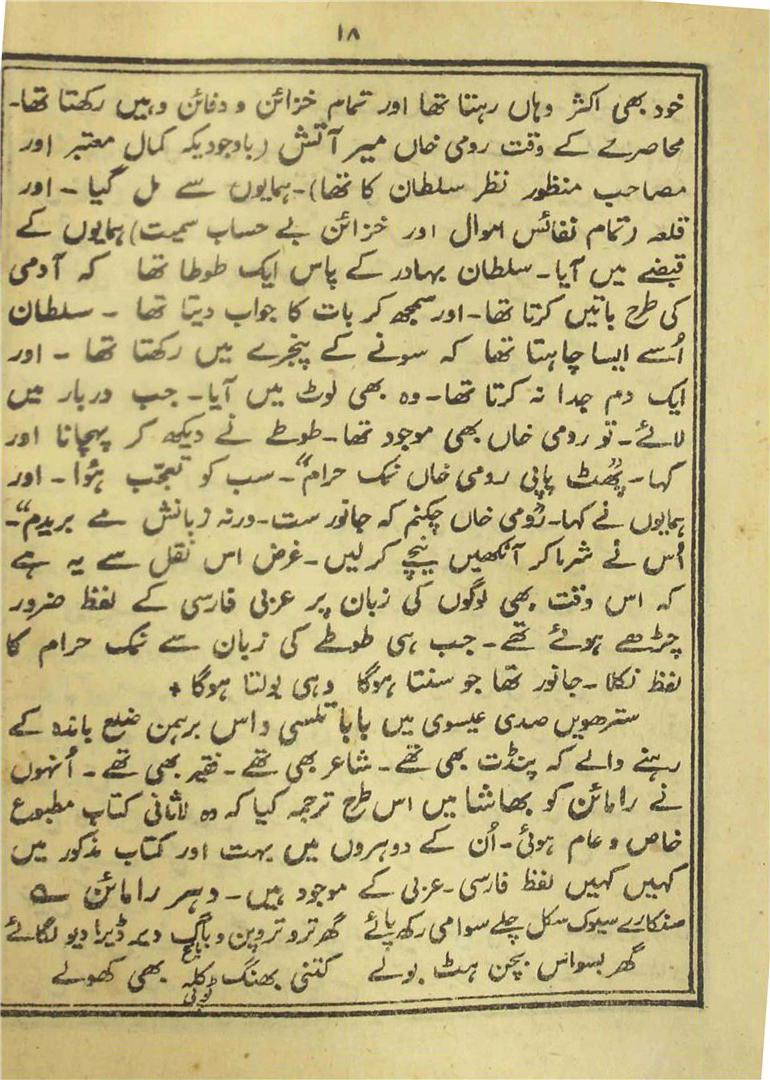 ۱۸
خود بھی اکثر وہاں رہتا تھا اور تمام خزائن و دفائن وہیں رکھتا تھا۔
محاصرے کے وقت رومی خاں میر آتش (باوجودیکہ کمال معتبر اور
مصاحب منظور نظر سلطان کا تھا)۔ ہمایوں سے مل گیا ۔ اور
قلعہ (تمام نفائس اموال اور خزائن بے حساب سمیت) ہمایوں کے
قبضے میں آیا۔ سلطان بہادر کے پاس ایک طوطا تھا کہ آدمی
کی طرح باتیں کرتا تھا۔ اور سمجھ کر بات کا جواب دیتا تھا ۔ سلطان
اُسے ایسا چاہتا تھا کہ سونے کے پنجرے میں رکھتا تھا ۔ اور
ایک دم جدا نہ کرتا تھا۔ وہ بھی لوٹ میں آیا۔ جب دربار میں
لائے۔ تو رومی خاں بھی موجود تھا۔ طوطے نے دیکھ کر پہچانا اور
کہا۔ پھٹ پاپی رومی خاں نمک حرام“۔ سب کو تعجّب ہُوا۔ اور
ہمایوں نے کہا۔ رُومی خاں چکنم کہ جانور ست۔ ورنہ زبانش مے بریدم“۔
اُس نے شرما کر آنکھیں نیچی کر لیں۔ غرض اس نقل سے یہ ہے
کہ اس وقت بھی لوگوں کی زبان پر عربی فارسی کے لفظ ضرور
چڑھے ہوئے تھے۔ جب ہی طوطے کی زبان سے نمک حرام کا
لفظ نکلا ۔ جانور تھا جو سنتا ہوگا وہی بولتا ہوگا +
سترھویں صدی عیسوی میں بابا تلسی داس برہمن ضلع باندہ کے
رہنے والے کہ پنڈت بھی تھے۔ شاعر بھی تھے ۔ فقیر بھی تھے ۔ اُنہوں
نے رامائن کو بھاشا میں اس طرح ترجمہ کیا کہ وہ لاثانی کتاب مطبوع
خاص و عام ہوئی۔ اُن کے دوہروں میں بہت اور کتاب مذکور میں
کہیں کہیں لفظ فارسی۔ عربی کے موجود ہیں۔ دہر رامائن ے
سیوک سکل چلے سوامی رکھ پائے گھر ترو تر وبن و باگ دیر ڈیرا دیو لگائے
گھر بسواس بچن ہٹ بولے کتنی بھنگ کلہ ٹوپی بھی کھولے